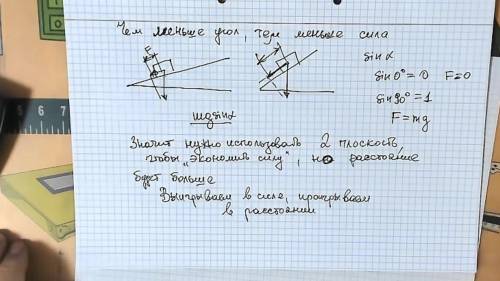 Чем меньше угол, тем меньше сила
F
sin α
sin 0° = 0 F=0
sin 90° = 1
F = mg
mg sin α
Значит нужно использовать 2 плоскость,
чтобы "экономить силу", но расстояние
будет больше
Выигрываем в силе, проигрываем
в расстоянии